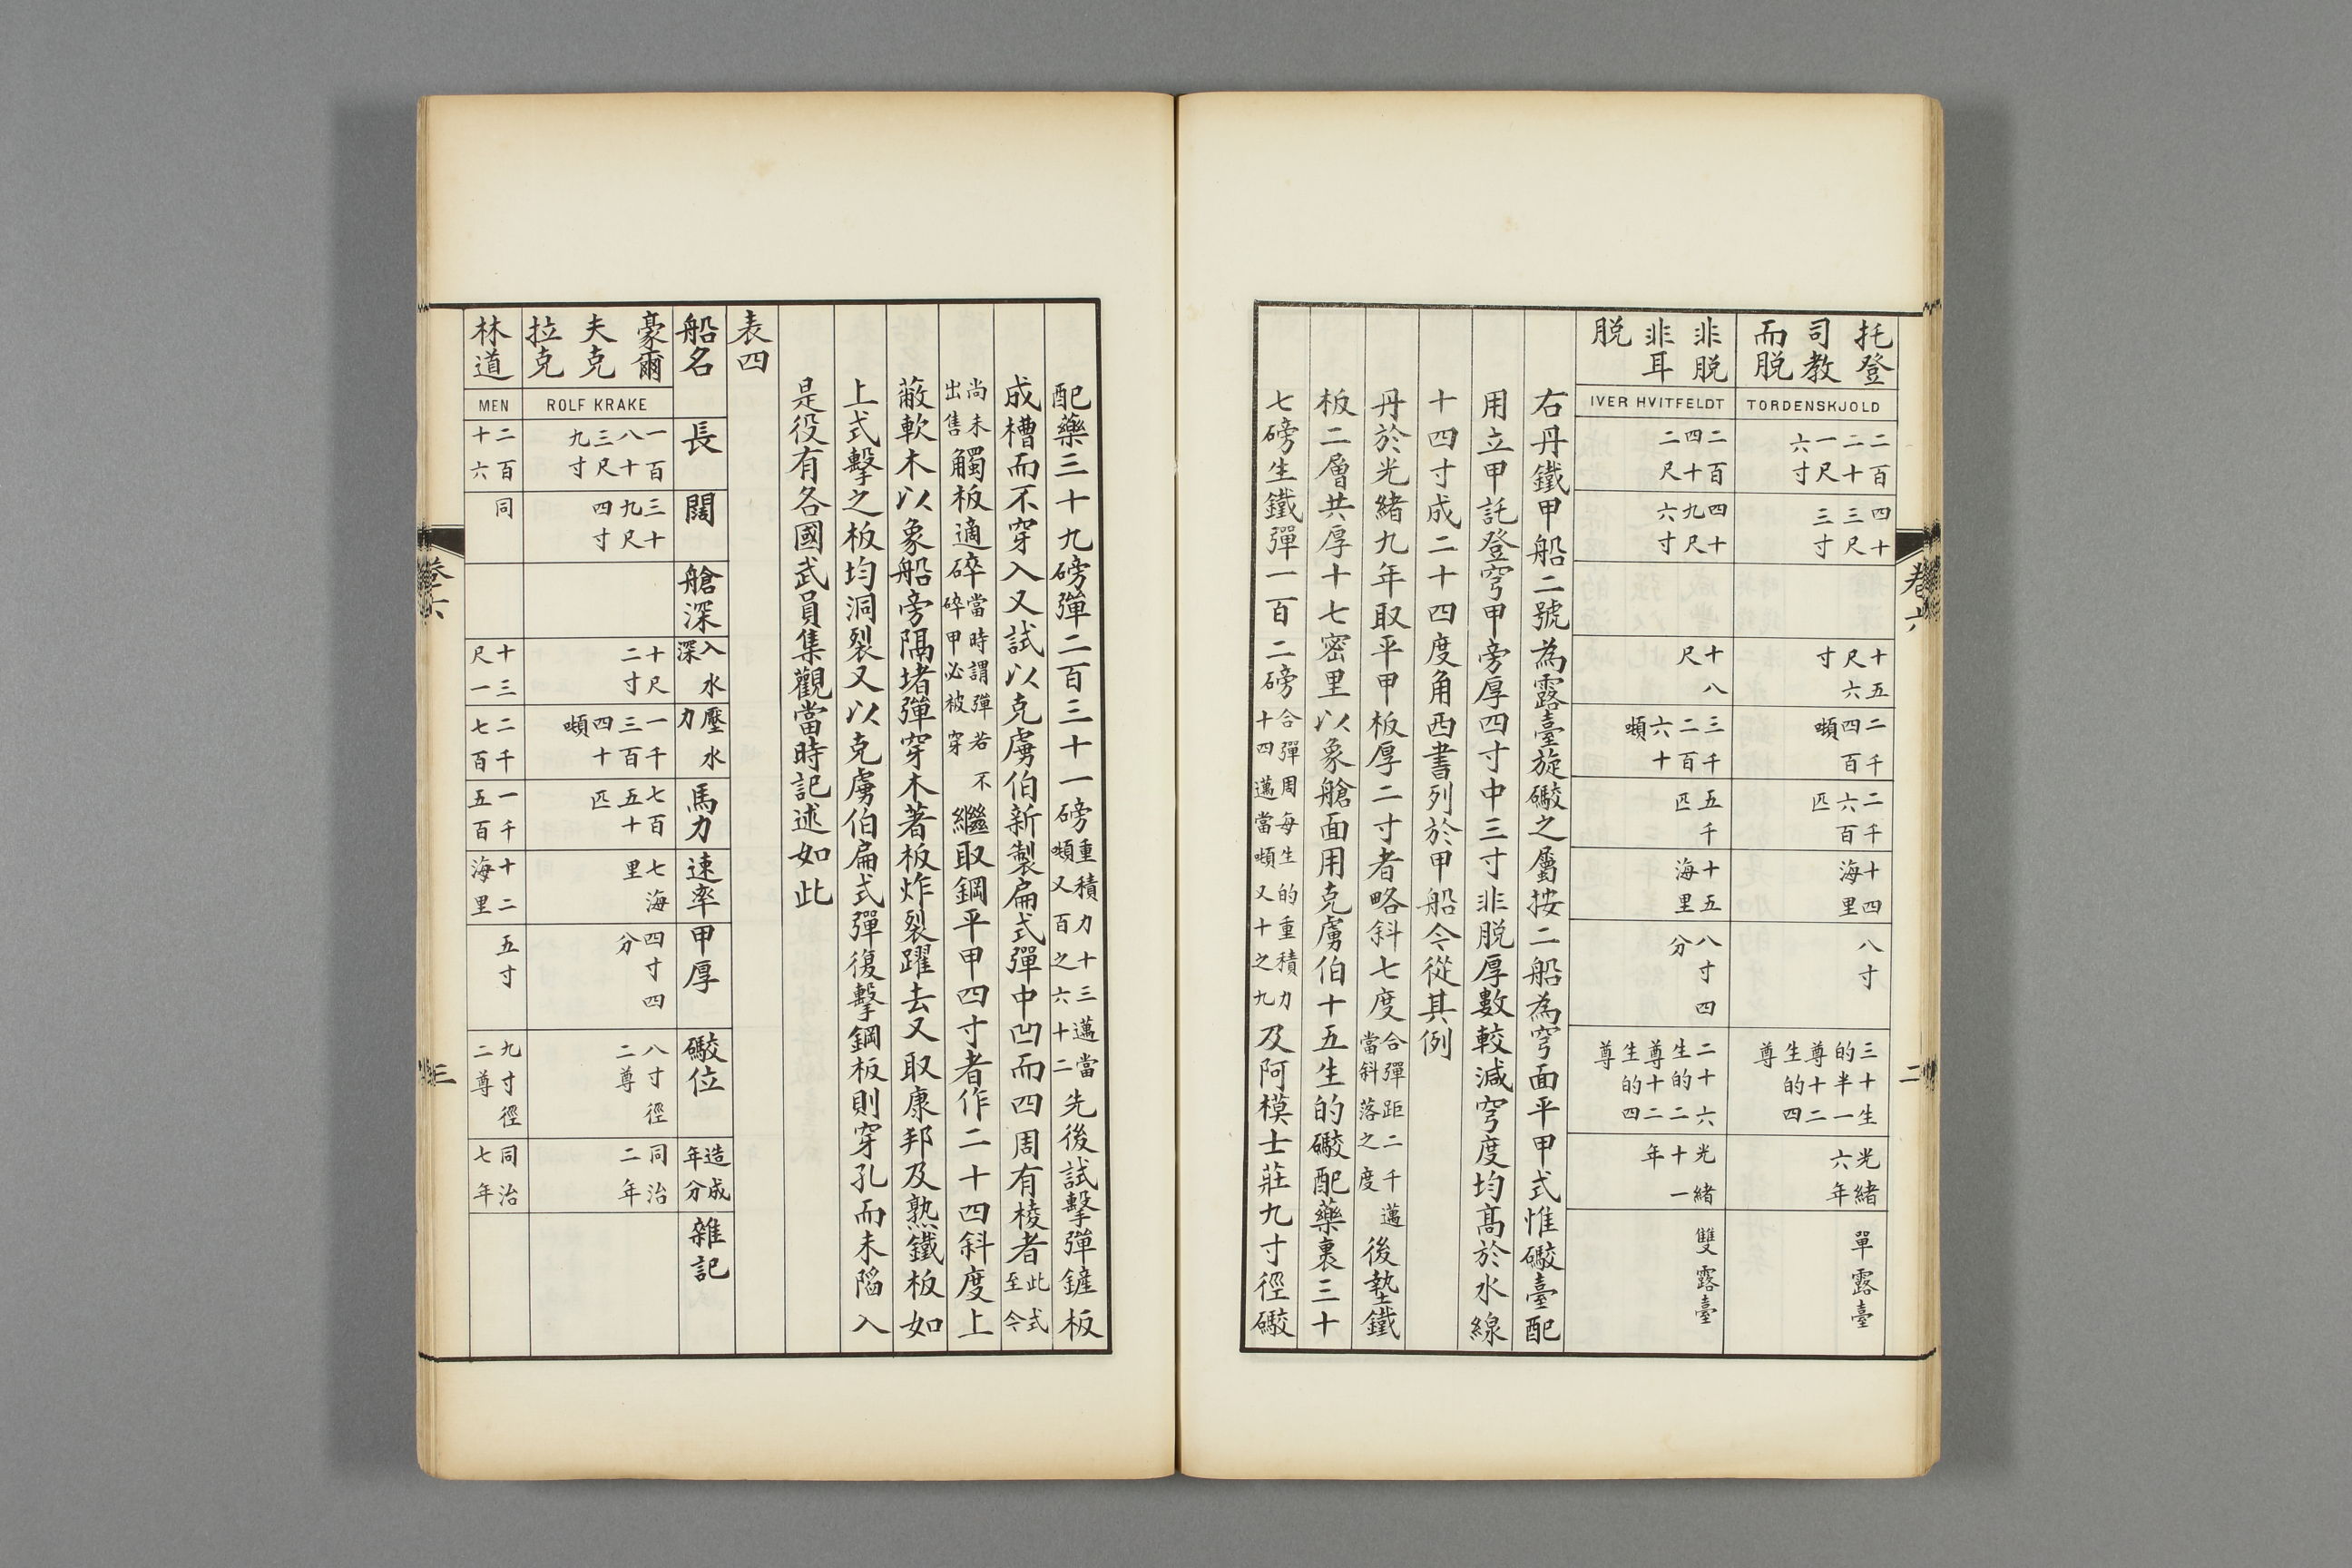 托登
司教
而脱
TORDENSKJOLD
二百
二十
一尺
六寸
四十
三尺
三寸
十五
尺六
寸
二千
四百
噸
二千
六百
匹
十四
海里
八寸
三十生
的半一
尊十二
生的四
尊
光緒
六年
單露臺
非脱
非耳
脱
IVER HVITFELDT
二百
四十
二尺
四十
九尺
六寸
十八
尺
三千
二百
六十
噸
五千
匹
十五
海里
八寸四
分
二十六
生的二
尊十二
生的四
尊
光緒
十一
年
雙露臺
右丹鐵甲船二號為露臺旋礮之屬按二船為穹面平甲式惟礮臺配
用立甲託登穹甲旁厚四寸中三寸非脱厚數較減穹度均高於水線
十四寸成二十四度角西書列於甲船今從其例
丹於光緒九年取平甲板厚二寸者略斜七度合彈距二千邁當斜落之度後墊鐵
板二層共厚十七密里以象艙面用克虜伯十五生的礮配藥裹三十
七磅生鐵彈一百二磅合彈周每生的重積力十四邁當噸又十之九及阿模士莊九寸徑礮
卷六
二
配藥三十九磅彈二百三十一磅重積力十三邁當噸又百之六十二先後試擊彈鏟板
成槽而不穿入又試以克虜伯新製扁式彈中凹而四周有棱者此式至今
尚未出售觸板適碎當時謂彈若不碎甲必被穿繼取鋼平甲四寸者作二十四斜度上
蔽軟木以象船旁隔堵彈穿木著板炸裂躍去又取康邦及熟鐵板如
上式擊之板均洞裂又以克虜伯扁式彈復擊鋼板則穿孔而未陷入
是役有各國武員集觀當時記述如此
表四
船名
長
闊
艙深
入水深
壓水力
馬力
速率
甲厚
礮位
造成年分
雜記
豪爾
夫克
拉克
ROLF KRAKE
一百
八十
三尺
九寸
三十
九尺
四寸
十尺
二寸
一千
三百
四十
噸
七百
五十
匹
七海
里
四寸四
分
八寸徑
二尊
同治
二年
林道
MEN
二百
十六
同
十三
尺一
二千
七百
一千
五百
十二
海里
五寸
九寸徑
二尊
同治
七年
卷六
三